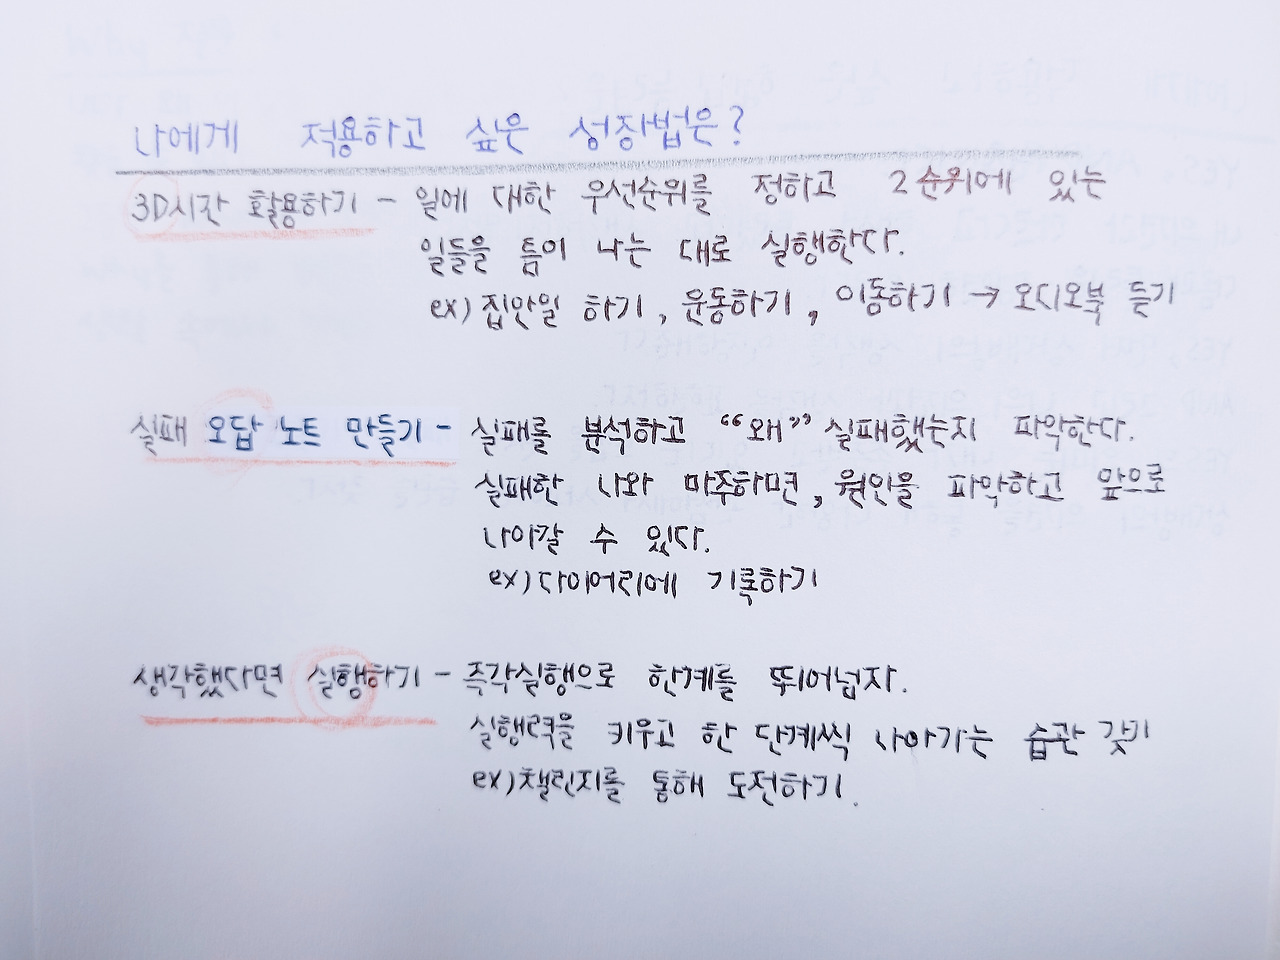 나에게 적용하고 싶은 성장법은?
3D시간 활용하기 - 일에 대한 우선순위를 정하고 2순위에 있는
일들을 틈이 나는 대로 실행한다.
ex) 집안일 하기, 운동하기, 이동하기 → 오디오북 듣기
실패 오답 노트 만들기 - 실패를 분석하고 “왜” 실패했는지 파악한다.
실패한 나와 마주하면, 원인을 파악하고 앞으로
나아갈 수 있다.
ex) 다이어리에 기록하기
생각했다면 실행하기 - 즉각실행으로 한계를 뛰어넘자.
실행력을 키우고 한 단계씩 나아가는 습관 갖기
ex) 챌린지를 통해 도전하기.